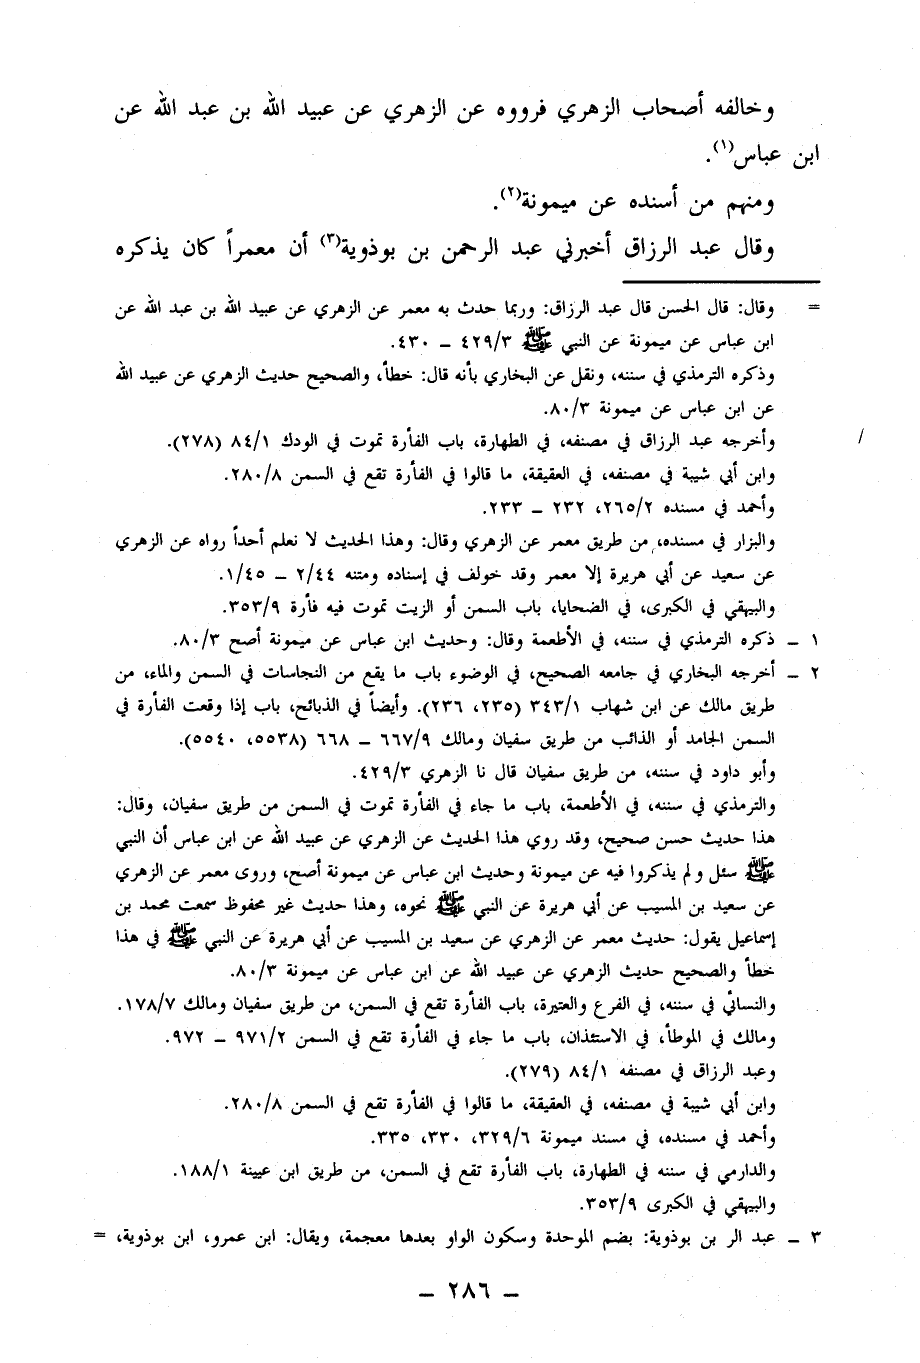 وخالفه أصحاب الزهري فرووه عن الزهري عن عبيد الله بن عبد الله عن
ابن عباس(١).
ومنهم من أسنده عن ميمونة(٢).
وقال عبد الرزاق أخبرني عبد الرحمن بن بوذوية(٣) أن معمراً كان يذكره
= وقال: قال الحسن قال عبد الرزاق: وربما حدث به معمر عن الزهري عن عبيد الله بن عبد الله عن
ابن عباس عن ميمونة عن النبي ﷺ ٤٢٩/٣ – ٤٣٠.
وذكره الترمذي في سننه، ونقل عن البخاري بأنه قال: خطأ، والصحيح حديث الزهري عن عبيد الله
عن ابن عباس عن ميمونة ٨٠/٣.
وأخرجه عبد الرزاق في مصنفه، في الطهارة، باب الفأرة تموت في الودك ٨٤/١ (٢٧٨).
وابن أبي شيبة في مصنفه، في العقيقة، ما قالوا في الفأرة تقع في السمن ٢٨٠/٨.
وأحمد في مسنده ٢٦٥/٢، ٢٣٢ – ٢٣٣.
والبزار في مسنده، من طريق معمر عن الزهري وقال: وهذا الحديث لا نعلم أحداً رواه عن الزهري
عن سعيد عن أبي هريرة إلا معمر وقد خولف في إسناده ومتنه ٢/٤٤ – ١/٤٥.
والبيهقي في الكبرى، في الضحايا، باب السمن أو الزيت تموت فيه فأرة ٣٥٣/٩.
١ – ذكره الترمذي في سننه، في الأطعمة وقال: وحديث ابن عباس عن ميمونة أصح ٨٠/٣.
٢ – أخرجه البخاري في جامعه الصحيح، في الوضوء باب ما يقع من النجاسات في السمن والماء، من
طريق مالك عن ابن شهاب ٣٤٣/١ (٢٣٥، ٢٣٦). وأيضاً في الذبائح، باب إذا وقعت الفأرة في
السمن الجامد أو الذائب من طريق سفيان ومالك ٦٦٧/٩ – ٦٦٨ (٥٥٣٨، ٥٥٤٠).
وأبو داود في سننه، من طريق سفيان قال نا الزهري ٤٢٩/٣.
والترمذي في سننه، في الأطعمة، باب ما جاء في الفأرة تموت في السمن من طريق سفيان، وقال:
هذا حديث حسن صحيح، وقد روي هذا الحديث عن الزهري عن عبيد الله عن ابن عباس أن النبي
ﷺ سئل ولم يذكروا فيه عن ميمونة وحديث ابن عباس عن ميمونة أصح، وروى معمر عن الزهري
عن سعيد بن المسيب عن أبي هريرة عن النبي ﷺ نحوه، وهذا حديث غير محفوظ سمعت محمد بن
إسماعيل يقول: حديث معمر عن الزهري عن سعيد بن المسيب عن أبي هريرة عن النبي ﷺ في هذا
خطأ والصحيح حديث الزهري عن عبيد الله عن ابن عباس عن ميمونة ٨٠/٣.
والنسائي في سننه، في الفرع والعتيرة، باب الفأرة تقع في السمن، من طريق سفيان ومالك ١٧٨/٧.
ومالك في الموطأ، في الاستئذان، باب ما جاء في الفأرة تقع في السمن ٩٧١/٢ – ٩٧٢.
وعبد الرزاق في مصنفه ٨٤/١ (٢٧٩).
وابن أبي شيبة في مصنفه، في العقيقة، ما قالوا في الفأرة تقع في السمن ٢٨٠/٨.
وأحمد في مسنده، في مسند ميمونة ٣٢٩/٦، ٣٣٠، ٣٣٥.
والدارمي في سننه في الطهارة، باب الفأرة تقع في السمن، من طريق ابن عيينة ١٨٨/١.
والبيهقي في الكبرى ٣٥٣/٩.
٣ – عبد الر بن بوذوية: بضم الموحدة وسكون الواو بعدها معجمة، ويقال: ابن عمرو، ابن بوذوية، =
– ٢٨٦ –